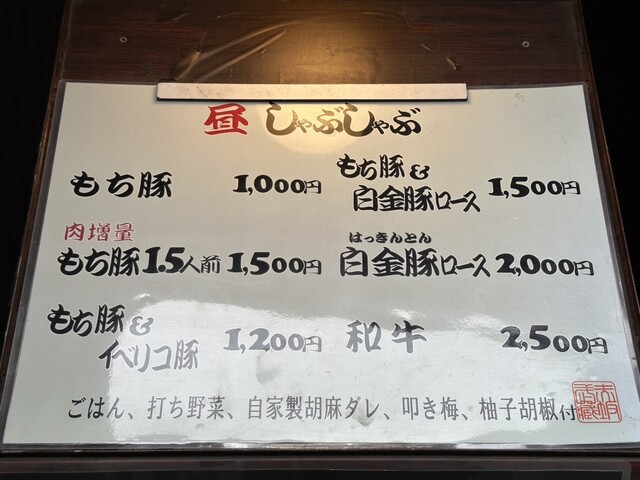 昼 しゃぶしゃぶ
もち豚 1,000円
肉増量
もち豚1.5人前 1,500円
もち豚&
イベリコ豚 1,200円
もち豚&
白金豚ロース 1,500円
はっきんとん
白金豚ロース 2,000円
和牛 2,500円
ごはん、打ち野菜、自家製胡麻ダレ、叩き梅、柚子胡椒付